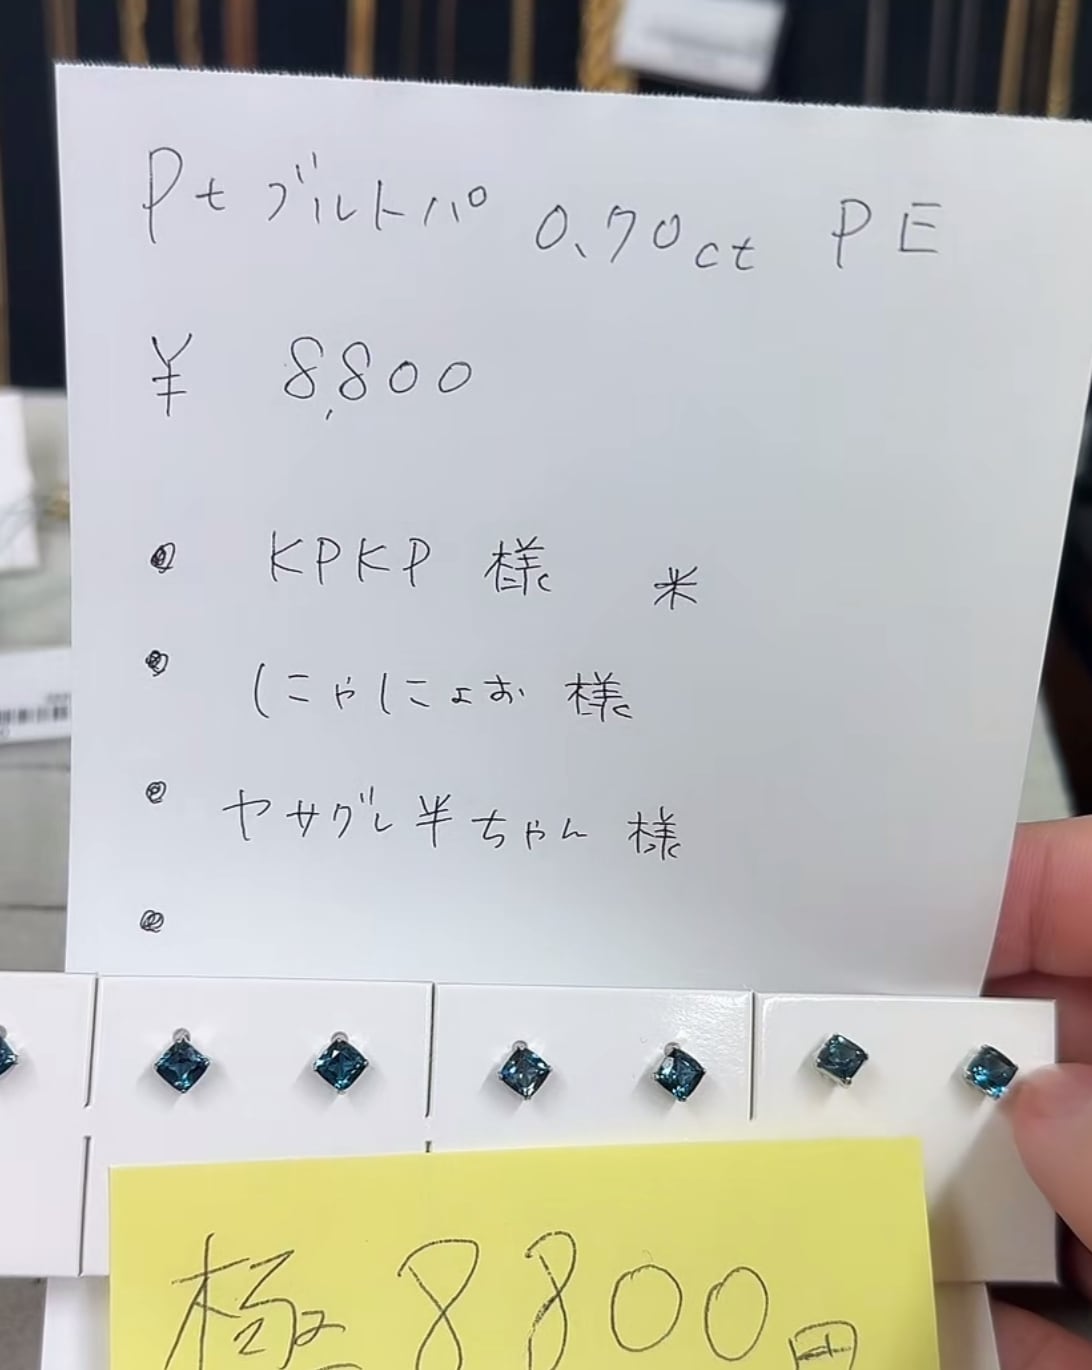 Pt ブルトパ 0.70ct PE
¥ 8,800
• KPKP 様 ※
• しにゃしにょお 様
• ヤサグレ半ちゃん 様
•
極 8800円